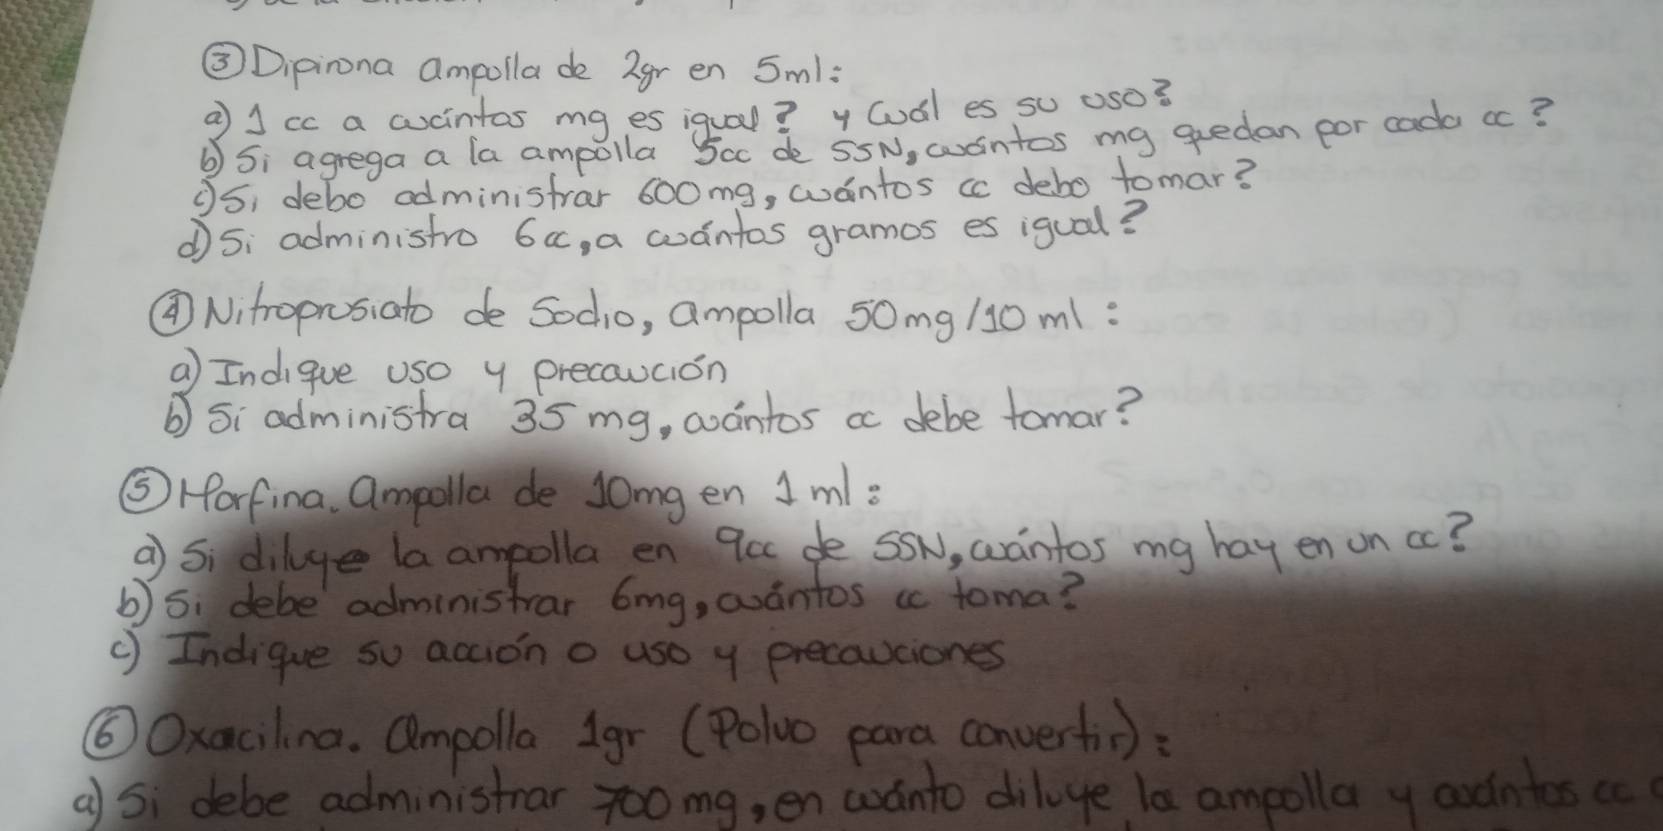 ③ Dipirona ampolla de 2gr en 5ml:
a) 1 cc a cuántos mg es igual? y Cuál es su uso?
b) Si agrega a la ampolla 5cc de SSN, cuántos mg quedan por cada cc?
c) Si debo administrar 600mg, cuántos cc debo tomar?
d) Si administro 6cc, a cuántos gramos es igual?
④ Nitroprusiato de Sodio, ampolla 50mg/10ml:
a) Indique uso y precaución
b) Si administra 35mg, cuántos cc debe tomar?
⑤ Morfina. ampolla de 10mg en 1ml:
a) Si diluye la ampolla en 9cc de SSN, cuántos mg hay en un cc?
b) Si debe administrar 6mg, cuántos cc toma?
c) Indique su acción o uso y precauciones
⑥ Oxacilina. Ampolla 1gr (Polvo para convertir):
a) Si debe administrar 700mg, en cuánto diluye la ampolla y cuántos cc